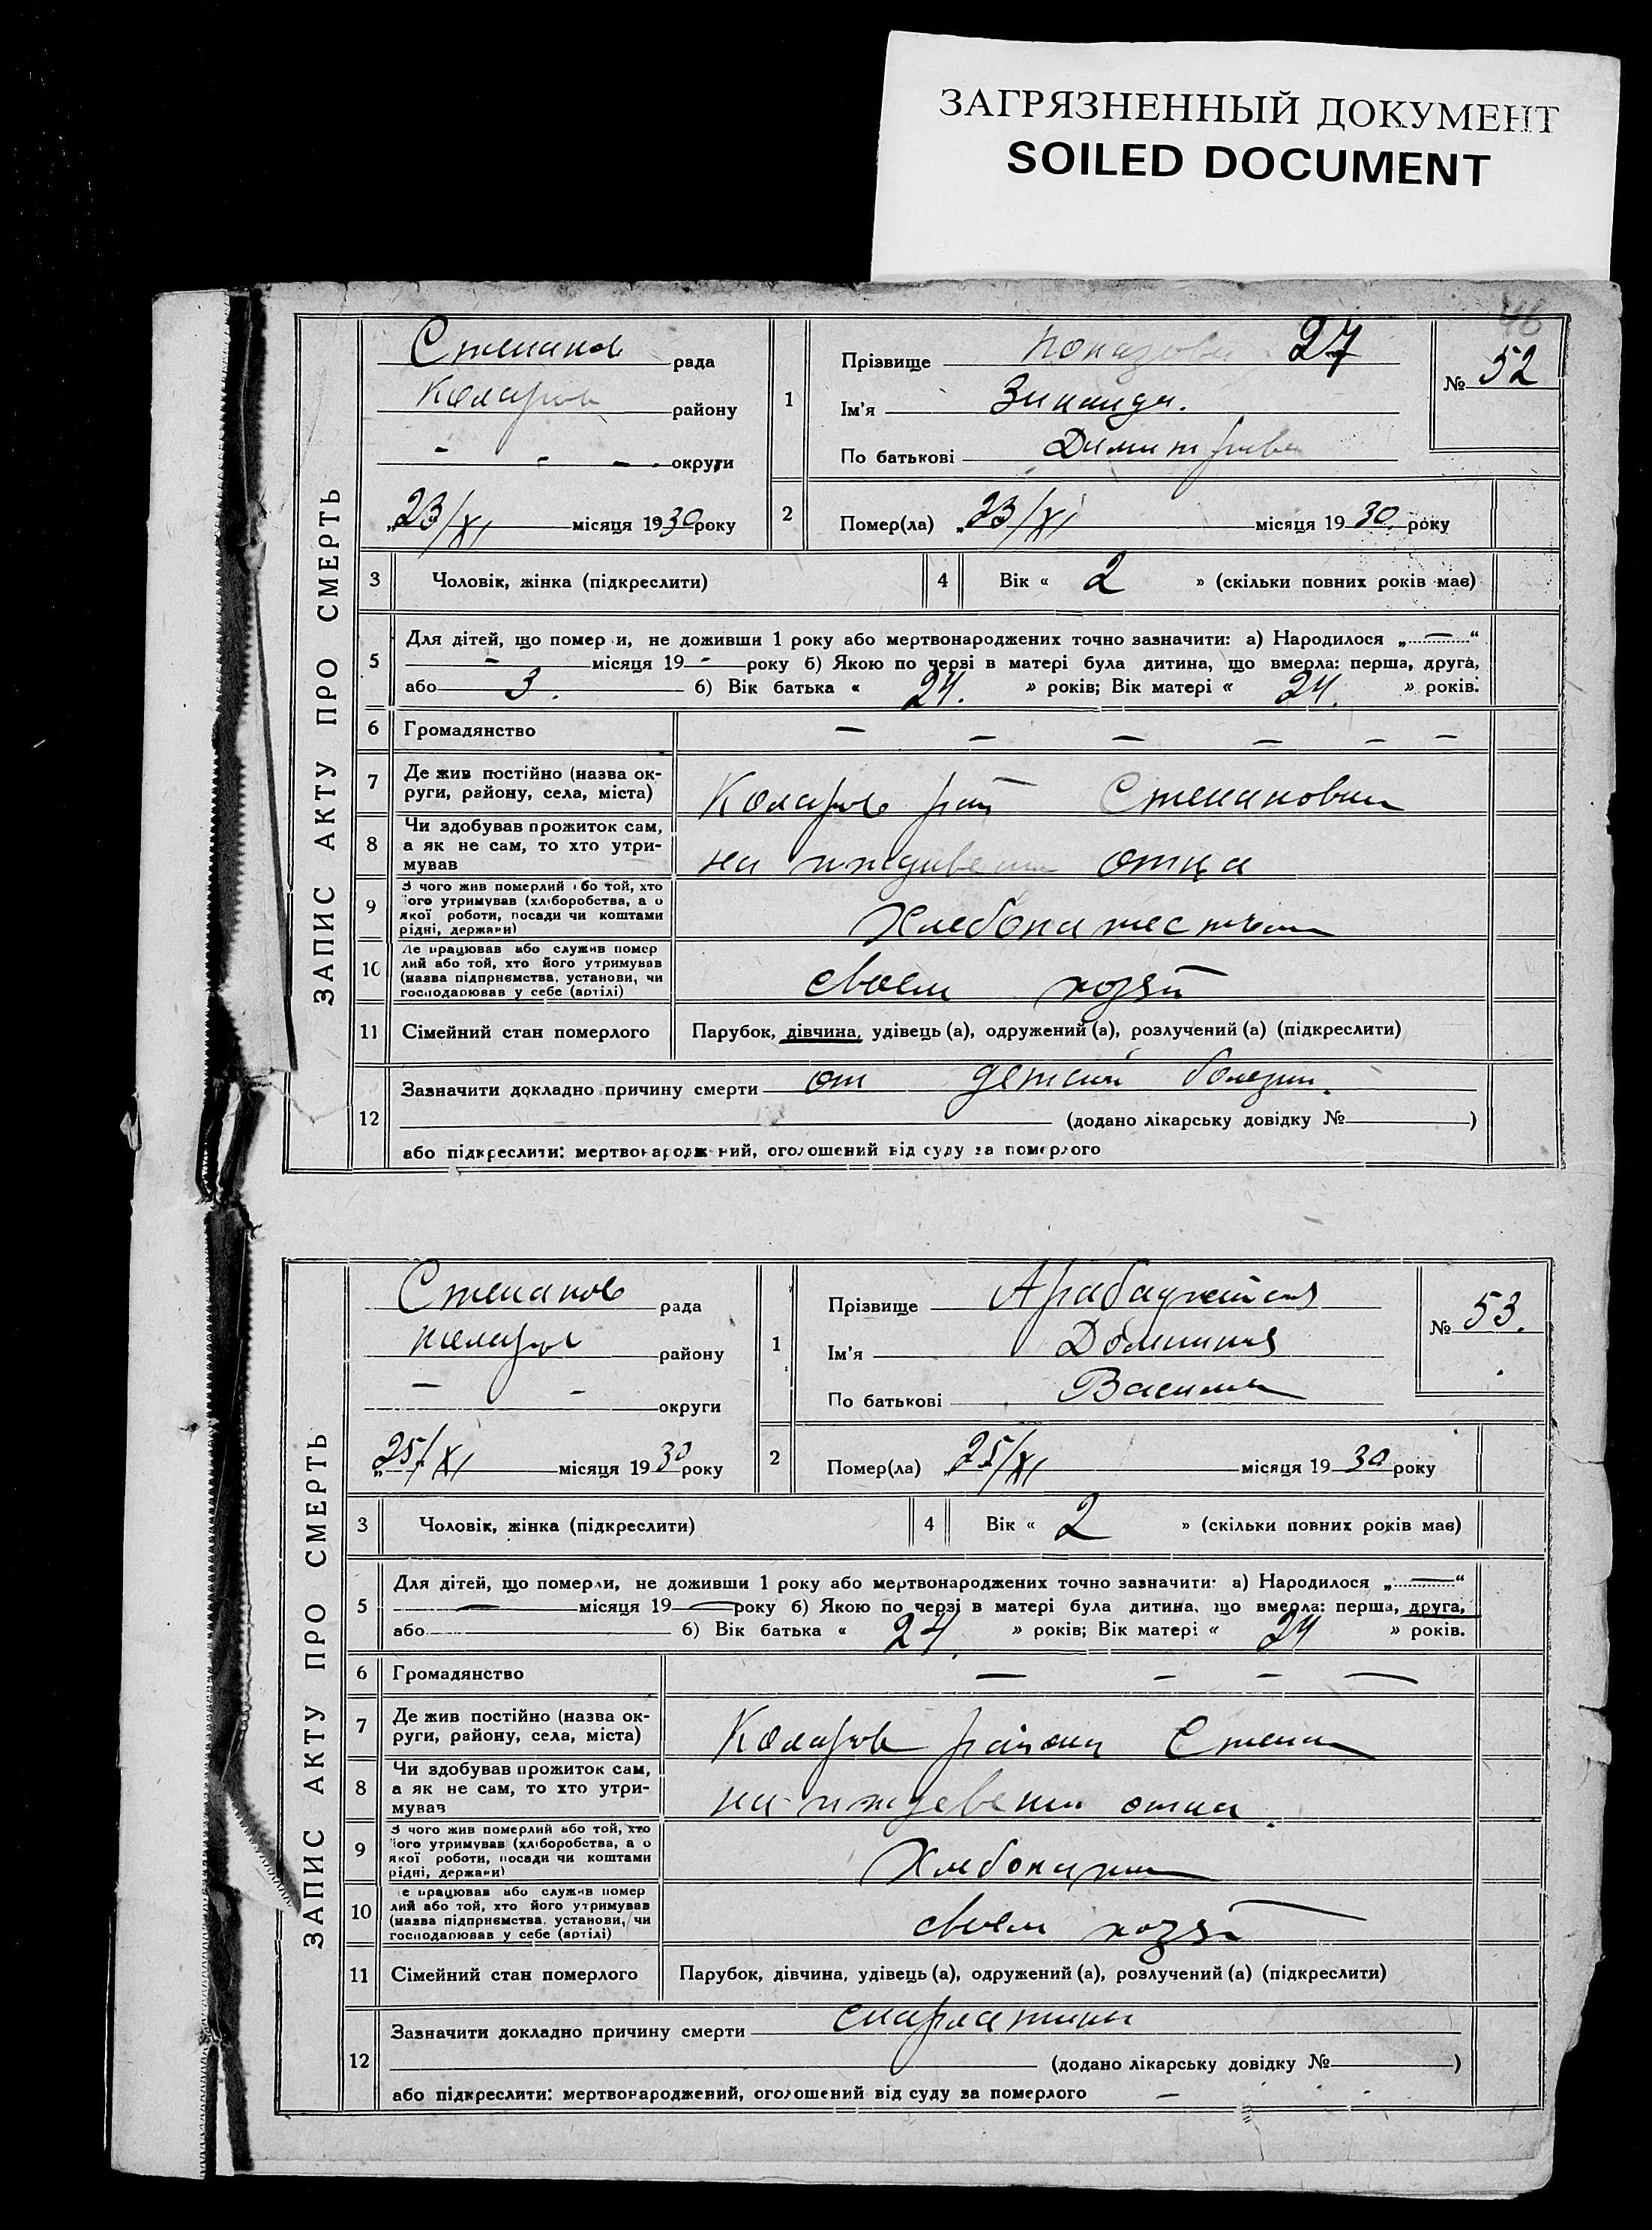 ЗАГРЯЗНЕННЫЙ ДОКУМЕНТ
SOILED DOCUMENT
46
ЗАПИС АКТУ ПРО СМЕРТЬ
Степанов рада
Коларов району
- - - округи
„23/XI місяця 1930 року
1 Прізвище 27
Ім'я Зинаида.
По батькові Димитриев
№ 52
2 Помер(ла) „23/XI місяця 1930. року
3 Чоловік, жінка (підкреслити)
4 Вік « 2 » (скільки повних років має)
5 Для дітей, що помер и, не доживши 1 року або мертвонароджених точно зазначити: а) Народилося „—“
- місяця 19 - року б) Якою по черзі в матері була дитина, що вмерла: перша, друга,
або 3. б) Вік батька « 24. » років; Вік матері « 24. » років.
6 Громадянство — — — — — —
7 Де жив постійно (назва ок-
руги, району, села, міста) Коларов рай Степановки
8 Чи здобував прожиток сам,
а як не сам, то хто утри-
мував на иждивении отца
9 З чого жив померлий або той, хто
його утримував (хліборобства, а о
якої роботи, посади чи коштами
рідні, держави)
10 Де працював або служив помер
лий або той, хто його утримував
(назва підприємства, установи, чи
господарював у себе (артілі) своем хозяй
11 Сімейний стан померлого Парубок, дівчина, удівець (а), одружений (а), розлучений (а) (підкреслити)
12 Зазначити докладно причину смерти от детской болезни.
(додано лікарську довідку № )
або підкреслити: мертвонароджений, оголошений від суду за померлого
ЗАПИС АКТУ ПРО СМЕРТЬ
Степанов рада
Коларов району
- - округи
„25/XI місяця 1930 року
1 Прізвище Арабаджийская
Ім'я Домникия
По батькові Васильев
№ 53.
2 Помер(ла) „25/XI місяця 1930 року
3 Чоловік, жінка (підкреслити)
4 Вік « 2 » (скільки повних років має)
5 Для дітей, що померли, не доживши 1 року або мертвонароджених точно зазначити: а) Народилося „—“
— місяця 19 — року б) Якою по черзі в матері була дитина, що вмерла: перша, друга,
або б) Вік батька « 24. » років; Вік матері « 24 » років.
6 Громадянство — — — —
7 Де жив постійно (назва ок-
руги, району, села, міста) Коларов района Степан
8 Чи здобував прожиток сам,
а як не сам, то хто утри-
мував на иждевении отца.
9 З чого жив померлий або той, хто
його утримував (хліборобства, а о
якої роботи, посади чи коштами
рідні, держави)
10 е працював або служив помер
лий або той, хто його утримував
(назва підприємства, установи, чи
господарював у себе (артілі) своем хозяй
11 Сімейний стан померлого Парубок, дівчина, удівець (а), одружений (а), розлучений (а) (підкреслити)
12 Зазначити докладно причину смерти скарлатины
(додано лікарську довідку № )
або підкреслити: мертвонароджений, оголошений від суду за померлого —